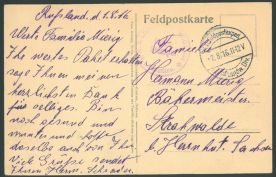 Feldpostkarte
Rußland, d. 1.8.16
Werte Familie Mierig
Ihr wertes Paket erhalten
sage Ihnen meinen
herzlichsten Dank
für selliges. Bin
noch gesund und
munter und hoffe
dasselbe auch von Ihnen
Viel Grüße sendet
Ihnen Herm. Schrader
Familie
Hermann Mierig
Bäckermeister
Strahwalde
b. Herrnhut Sachsen